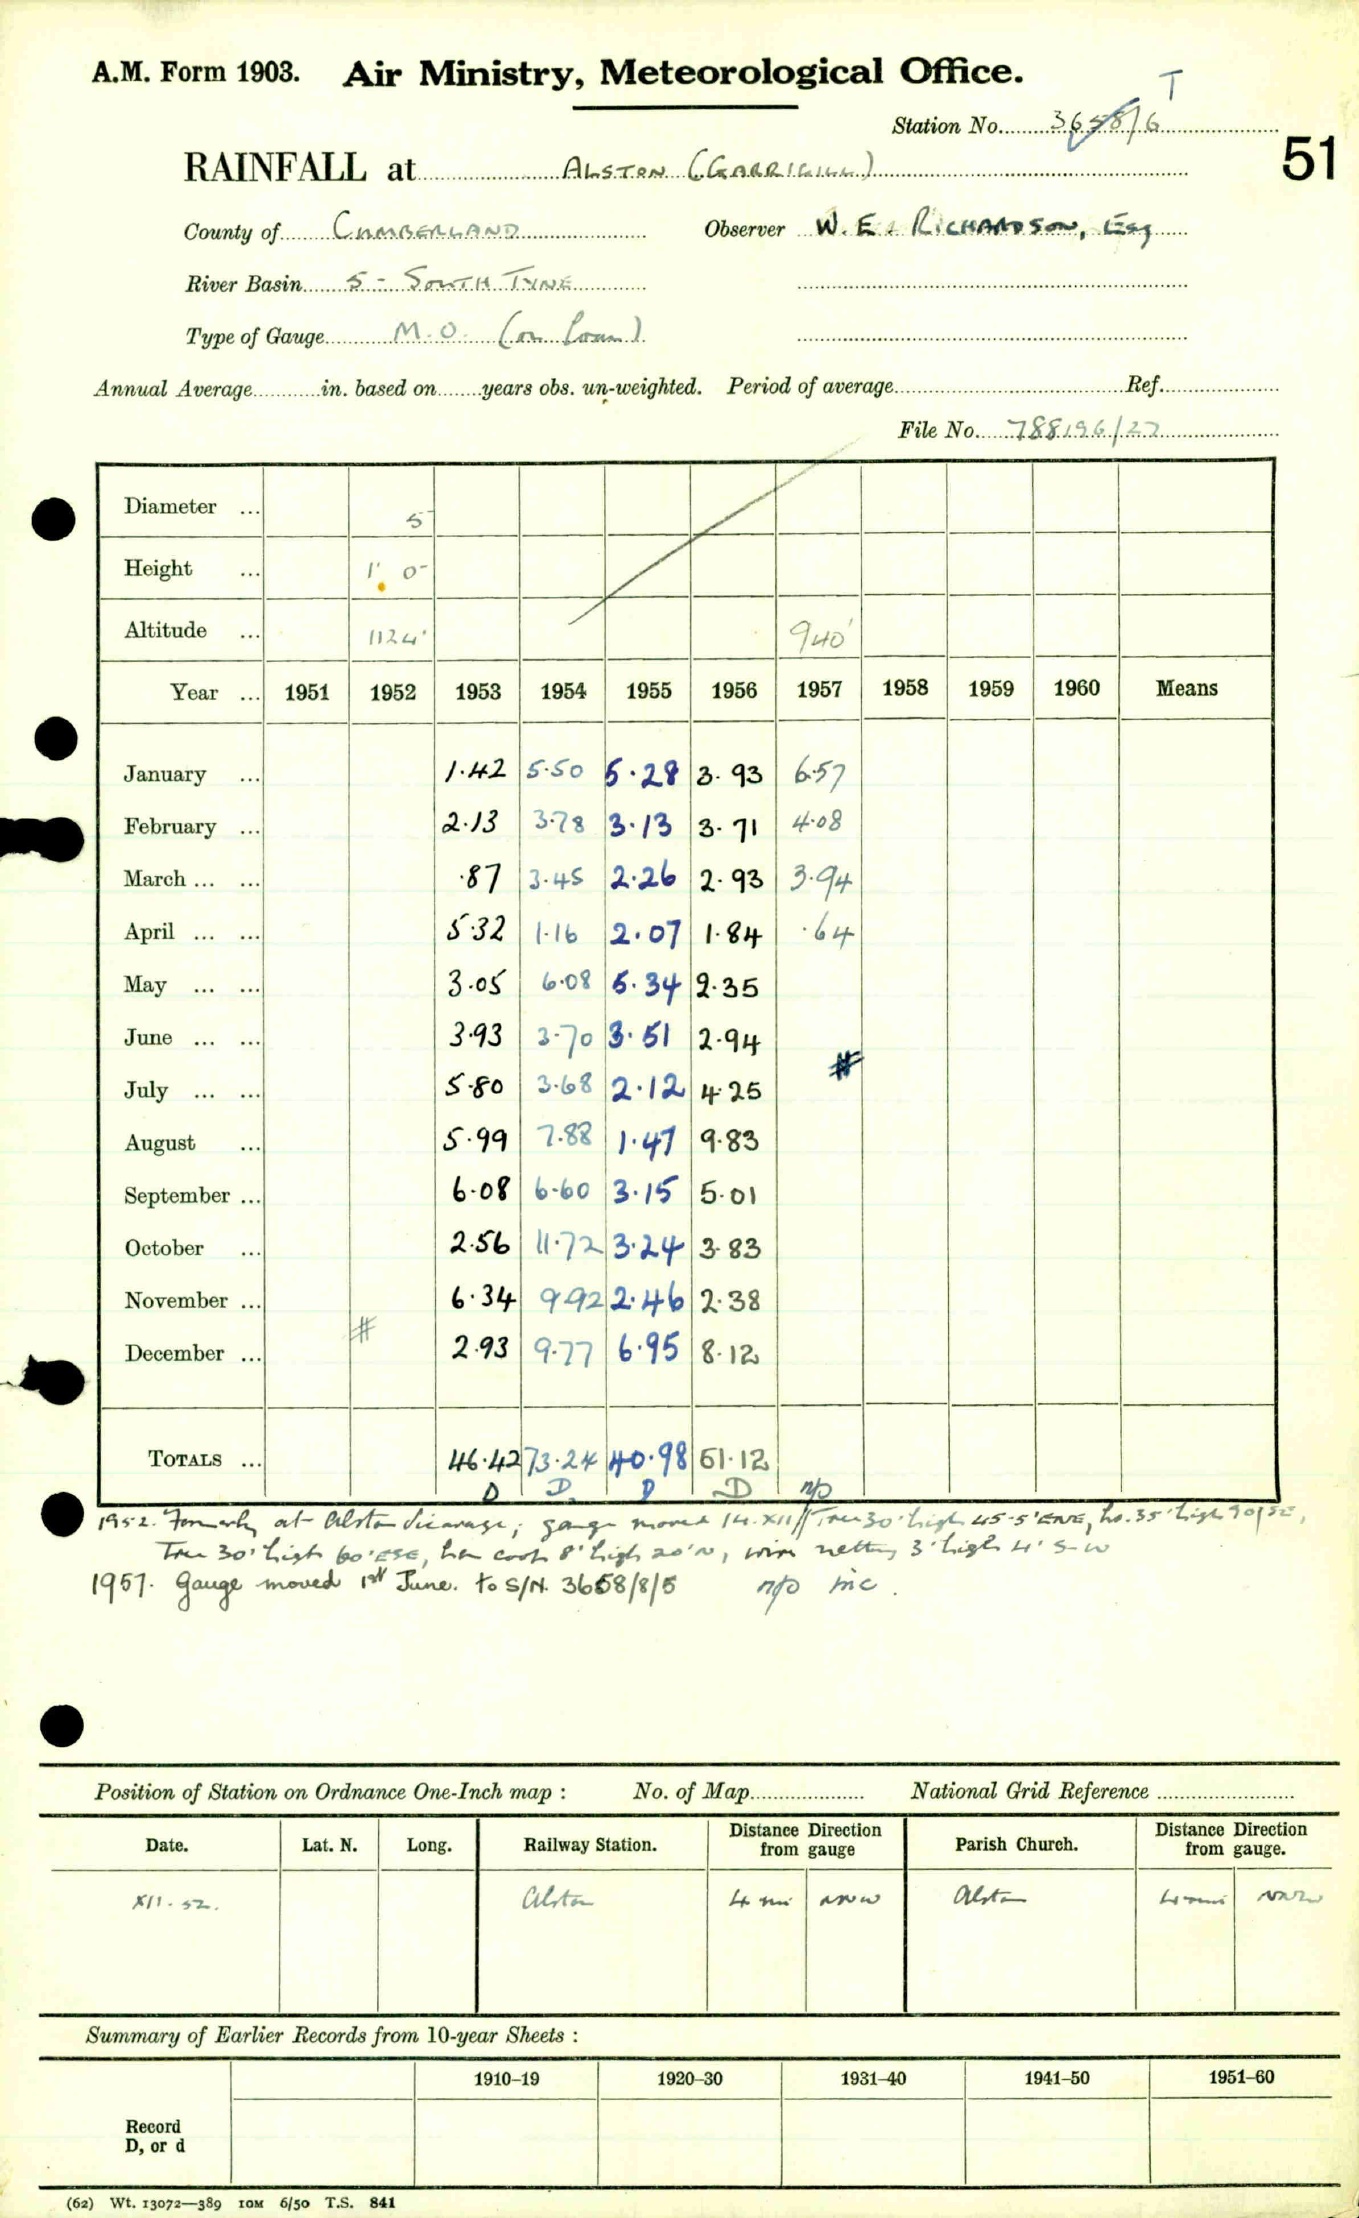 A.M. Form 1903. Air Ministry, Meteorological Office.
T
Station No. 3658/6
51
RAINFALL at ALSTON (GARRIGILL)
County of CUMBERLAND Observer W. E. RICHARDSON, Esq
River Basin 5 - SOUTH TYNE
Type of Gauge M.O. (on loan)
Annual Average in. based on years obs. un-weighted. Period of average Ref.
File No. 788196/27
Diameter ... 5
Height ... 1' 0"
Altitude ... 1124' 940'
Year ... 1951 1952 1953 1954 1955 1956 1957 1958 1959 1960 Means
January ... 1.42 5.50 5.28 3.93 6.57
February ... 2.13 3.78 3.13 3.71 4.08
March ... ... .87 3.45 2.26 2.93 3.94
April ... ... 5.32 1.16 2.07 1.84 .64
May ... ... 3.05 6.08 5.34 2.35
June ... ... 3.93 3.70 3.51 2.94
#
July ... ... 5.80 3.68 2.12 4.25
August ... 5.99 7.88 1.47 9.83
September ... 6.08 6.60 3.15 5.01
October ... 2.56 11.72 3.24 3.83
November ... 6.34 9.92 2.46 2.38
#
December ... 2.93 9.77 6.95 8.12
TOTALS ... 46.42 73.24 40.98 51.12
D D. D D n/p
1952. Formerly at Alston Vicarage; gauge moved 14.XII // Tree 30' high 45.5' ENE, ho. 35' high 90' SE,
Tree 30' high 60' ESE, hen coop 8' high 20' N, wire netting 3' high 4' S-W
1957. Gauge moved 1st June. to S/N. 3658/8/5 n/p inc.
Position of Station on Ordnance One-Inch map : No. of Map National Grid Reference
Date. Lat. N. Long. Railway Station. Distance from gauge Direction Parish Church. Distance from gauge. Direction
XII. 52. Alston 4 mi NNW Alston 4 mi NNW
Summary of Earlier Records from 10-year Sheets :
1910–19 1920–30 1931–40 1941–50 1951–60
Record
D, or d
(62) Wt. 13072—389 10M 6/50 T.S. 841